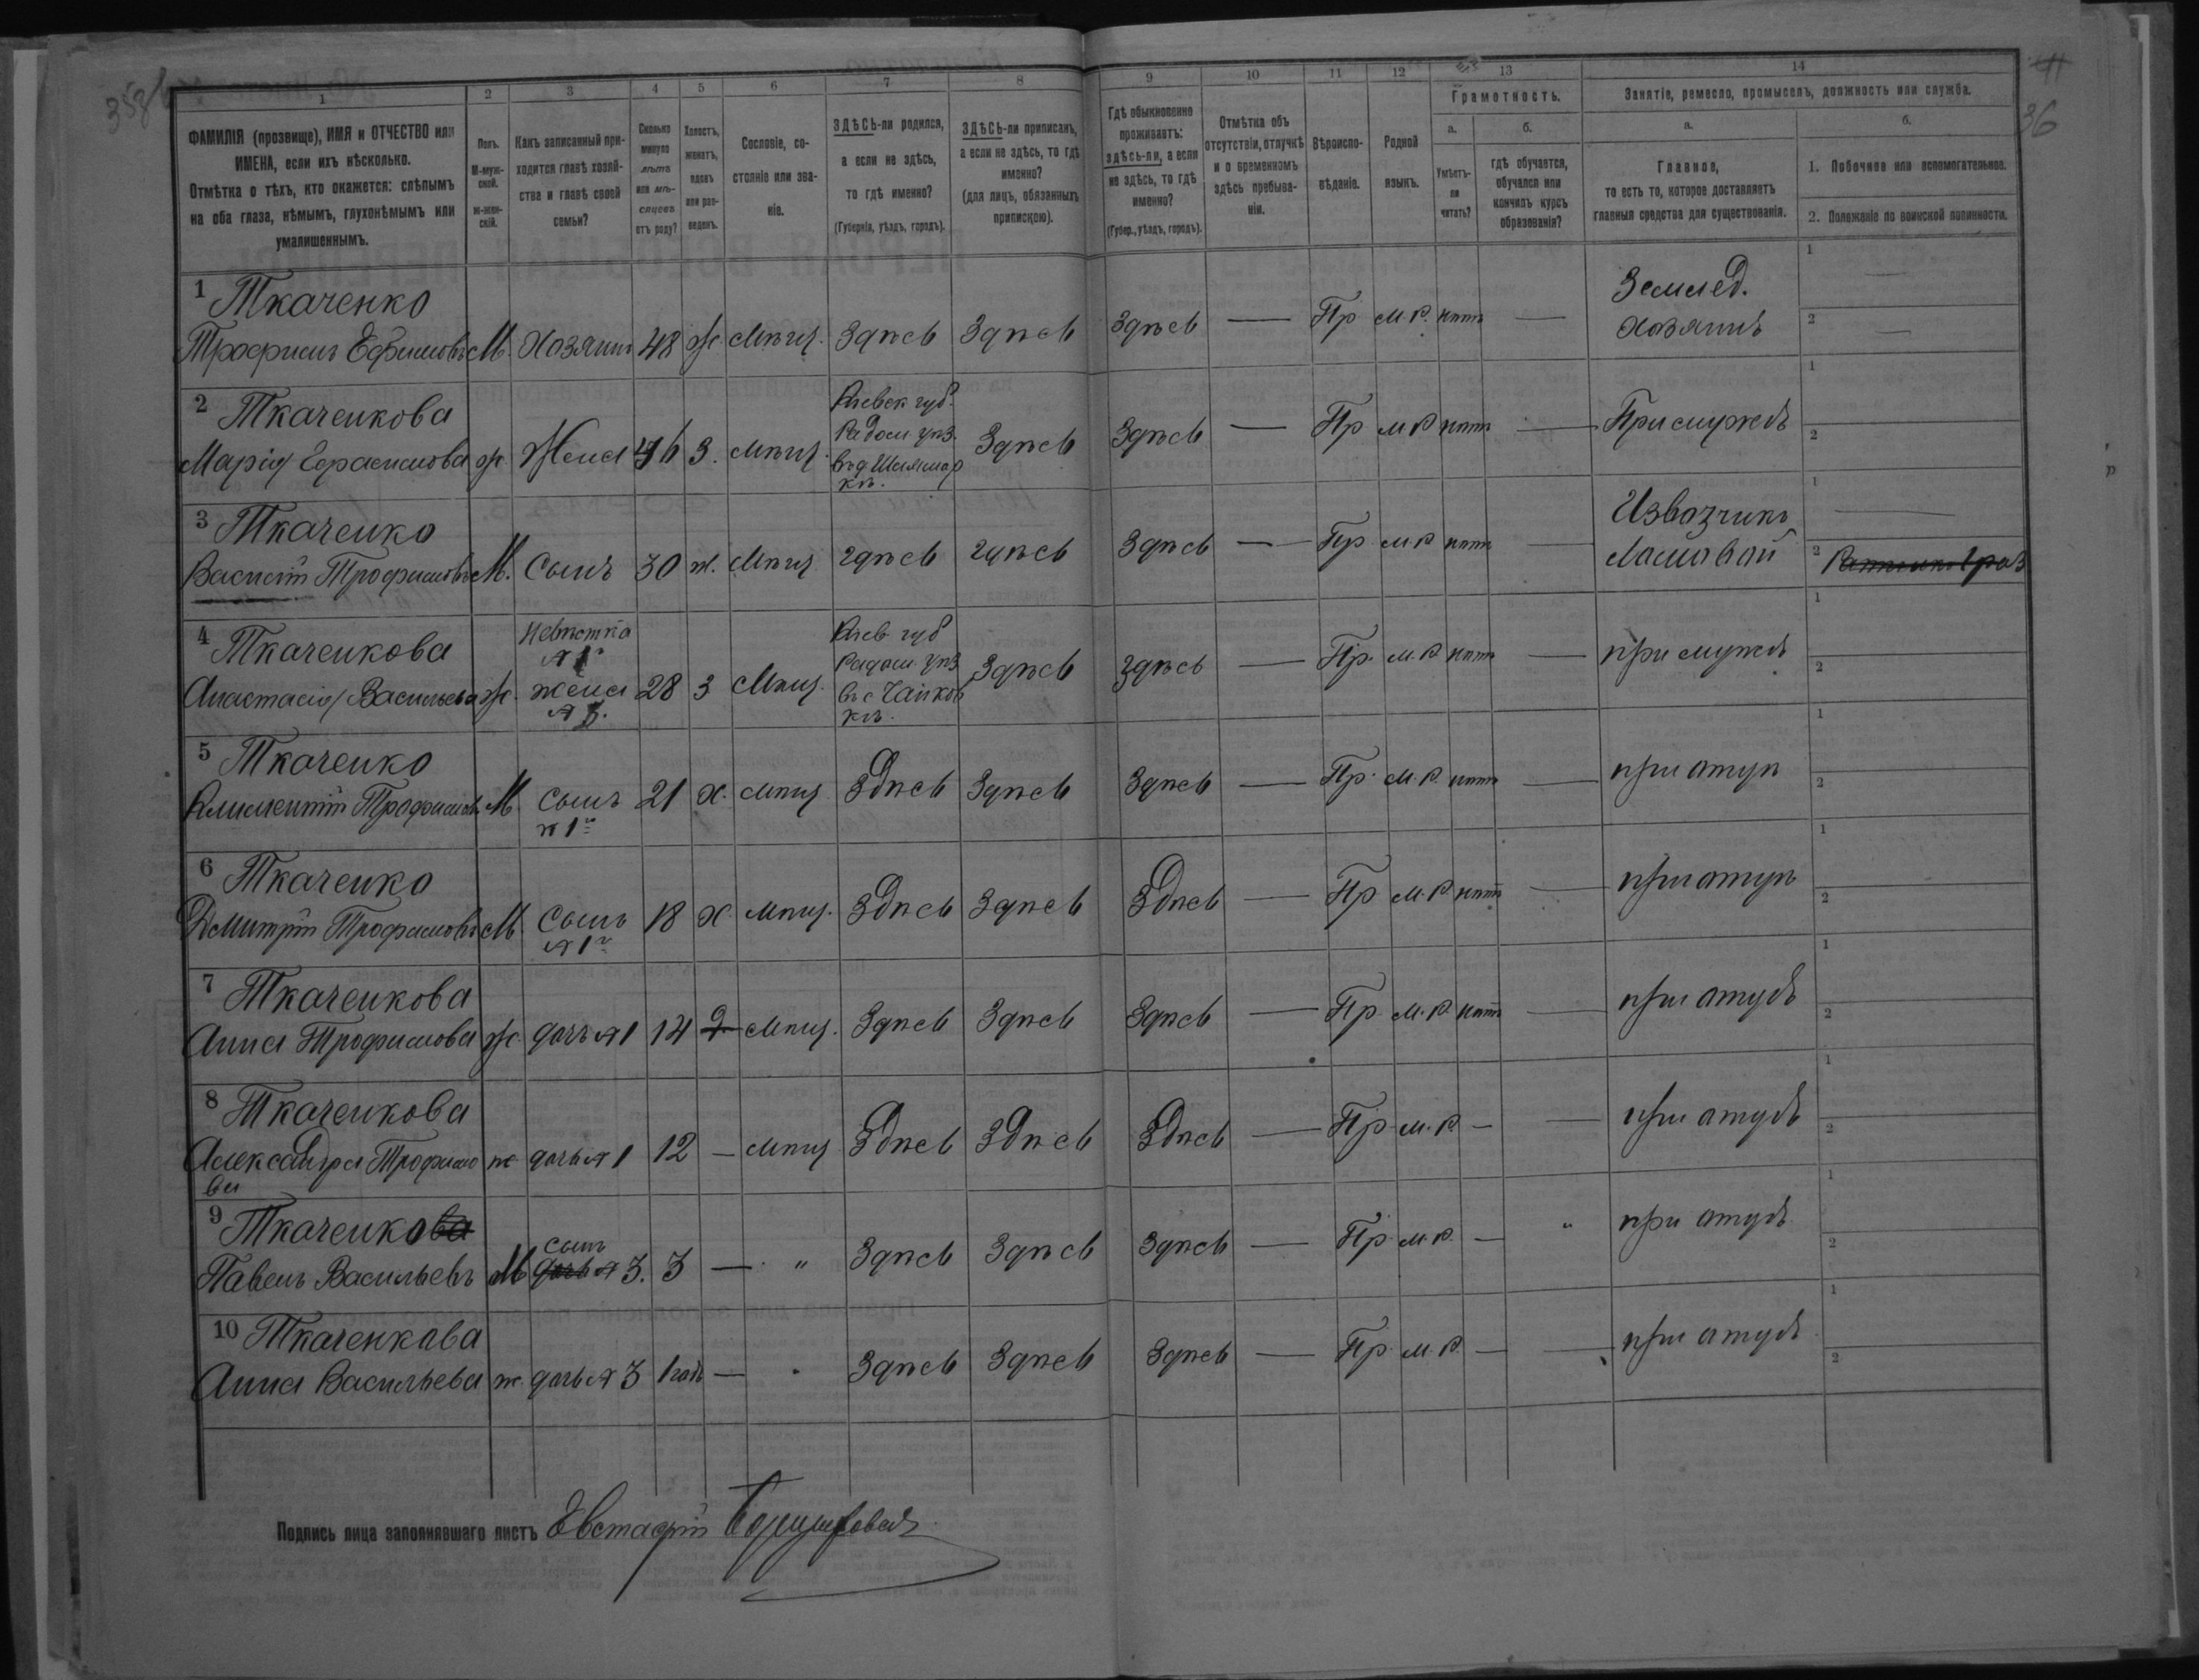 36
1 2 3 4 5 6 7 8 9 10 11 12 13 14
ФАМИЛІЯ (прозвище), ИМЯ и ОТЧЕСТВО или ИМЕНА, если ихъ нѣсколько.
Отмѣтка о тѣхъ, кто окажется: слѣпымъ на оба глаза, нѣмымъ, глухонѣмымъ или умалишеннымъ.
Полъ. М-мужской. ж-женскій.
Какъ записанный приходится главѣ хозяйства и главѣ своей семьи?
Сколько минуло лѣтъ или мѣсяцевъ отъ роду?
Холостъ, женатъ, вдовъ или разведенъ.
Сословіе, состояніе или званіе.
ЗДѢСЬ-ли родился, а если не здѣсь, то гдѣ именно? (Губернія, уѣздъ, городъ).
ЗДѢСЬ-ли приписанъ, а если не здѣсь, то гдѣ именно? (для лицъ, обязанныхъ припискою).
Гдѣ обыкновенно проживаетъ: здѣсь-ли, а если не здѣсь, то гдѣ именно? (Губер., уѣздъ, городъ).
Отмѣтка объ отсутствіи, отлучкѣ и о временномъ здѣсь пребываніи.
Вѣроисповѣданіе.
Родной языкъ.
Грамотность.
а. Умѣетъ-ли читать?
б. гдѣ обучается, обучался или кончилъ курсъ образованія?
Занятіе, ремесло, промыселъ, должность или служба.
а. Главное, то есть то, которое доставляетъ главныя средства для существованія.
б. 1. Побочное или вспомогательное.
2. Положеніе по воинской повинности.
1 Ткаченко
Трофимъ Ефимовъ М. Хозяинъ 48 ж мѣщ. Здѣсь Здѣсь Здѣсь — Пр м.р. нѣтъ — Землед. Хозяинъ 1 — 2 —
2 Ткаченкова
Марія Герасимова ж. Жена 46 З. мѣщ. Кіевск губ. Радом уѣз. въ д. Здѣсь Здѣсь — Пр м р нѣтъ — При мужѣ 1 2
3 Ткаченко
Василій Трофимовъ М. Сынъ 30 ж. мѣщ здѣсь здѣсь Здѣсь — Пр м р нѣтъ — Извозчикъ Ломовой 1 — 2
4 Ткаченкова
Анастасія Васильева ж. Невѣстка № 1 жена № 3. 28 З мѣщ. Кіев губ Радом уѣз въ с Чайков Здѣсь здѣсь — Пр. м. р. нѣтъ — при мужѣ 1 2
5 Ткаченко
Климентій Трофимовъ М сынъ № 1 21 х. мѣщ Здѣсь Здѣсь Здѣсь — Пр. м. р. нѣтъ — при отцѣ 1 2
6 Ткаченко
Дмитрій Трофимовъ М сынъ № 1 18 х мѣщ. Здѣсь Здѣсь Здѣсь — Пр м. р. нѣтъ — при отцѣ 1 2
7 Ткаченкова
Анна Трофимова ж. дочь № 1 14 мѣщ. Здѣсь Здѣсь Здѣсь — Пр. м. р. нѣтъ — при отцѣ 1 2
8 Ткаченкова
Александра Трофимова ж дочь № 1 12 — мѣщ Здѣсь Здѣсь Здѣсь — Пр. м. р. — — при отцѣ 1 2
9 Ткаченкова
Павелъ Васильевъ М сынъ дочь № 3. 3 — " Здѣсь Здѣсь Здѣсь — Пр. м. р. — " при отцѣ 1 2
10 Ткаченкова
Анна Васильева ж. дочь № 3 1 годъ — " Здѣсь Здѣсь Здѣсь — Пр. м. р. — — при отцѣ 1 2
Подпись лица заполнявшаго листъ Евстафій